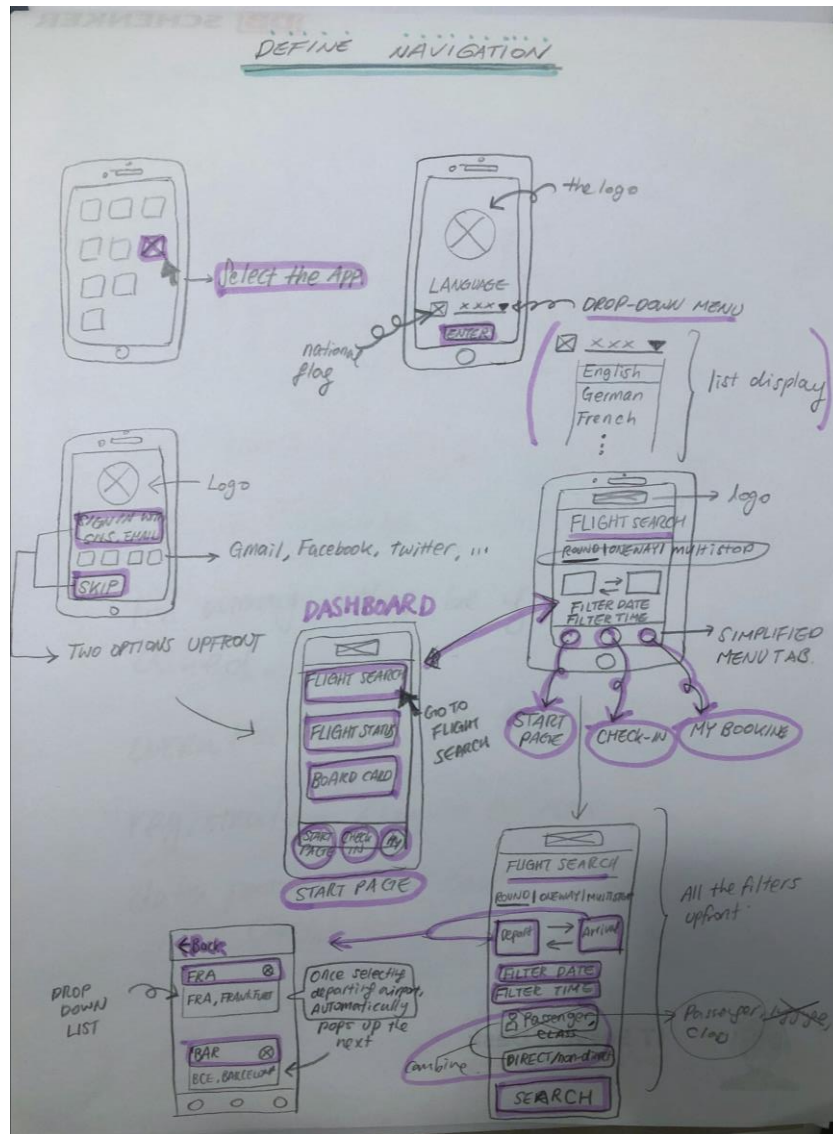 DB SCHENKER
DEFINE NAVIGATION
Select the App
the logo
LANGUAGE
xxx
ENTER
national
flag
DROP-DOWN MENU
xxx
English
German
French
list display
Logo
SIGN IN WITH
SNS, EMAIL
SKIP
Gmail, Facebook, Twitter, ...
TWO OPTIONS UPFRONT
logo
FLIGHT SEARCH
ROUND | ONEWAY | multistop
FILTER DATE
FILTER TIME
SIMPLIFIED
MENU TAB.
START
PAGE
CHECK-IN
MY BOOKING
DASHBOARD
FLIGHT SEARCH
FLIGHT STATUS
BOARD CARD
START
PAGE
CHECK
IN
My
GO TO
FLIGHT
SEARCH
START PAGE
FLIGHT SEARCH
ROUND | ONEWAY | MULTISTOP
Depart
Arrival
FILTER DATE
FILTER TIME
Passenger,
CLASS
DIRECT/non-direct
SEARCH
Combine
All the filters
upfront.
Passenger,
Back
FRA
FRA, FRANKFURT
BAR
BCE, BARCELONA
DROP
DOWN
LIST
Once selecting
departing airport,
AUTOMATICALLY
pops up the
next